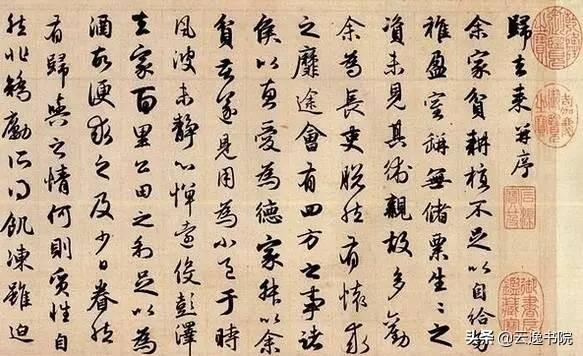 歸去來并序
余家貧耕植不足以自給幼
稚盈室缾無儲粟生生之
資未見其術親故多勸
余為長吏脫然有懷求
之靡途會有四方之事諸
侯以惠愛為德家叔以余
貧苦遂見用為小邑于時
風波未靜心憚遠役彭澤
去家百里公田之利足以為
酒故便求之及少日眷然
有歸與之情何則質性自
然非矯勵所得飢凍雖迫
嘉慶御覽之寶
石渠寶笈
御書房鑑藏寶
头条 @云逸书院